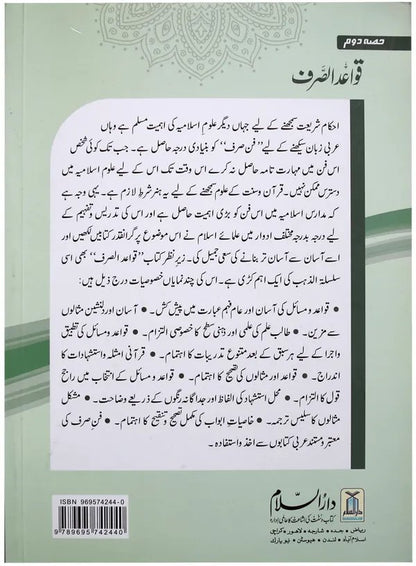 حصہ دوم
قواعد الصرف
احکام شریعت سمجھنے کے لیے جہاں دیگر علوم اسلامیہ کی اہمیت مسلم ہے وہاں
عربی زبان سیکھنے کے لیے ”فن صرف“ کو بنیادی درجہ حاصل ہے۔ جب تک کوئی شخص
اس فن میں مہارت تامہ حاصل نہ کرے اس وقت تک اس کے لیے علوم اسلامیہ میں
دسترس ممکن نہیں۔ قرآن وسنت کے علوم سمجھنے کے لیے یہ ہنر شرط لازم ہے۔ یہی وجہ ہے
کہ مدارس اسلامیہ میں اس فن کو بڑی اہمیت حاصل ہے اور اس کی تدریس و تفہیم کے
لیے درجہ بدرجہ مختلف ادوار میں علمائے اسلام نے اس موضوع پر گرانقدر کتابیں لکھیں اور
اسے آسان سے آسان تر بنانے کی سعی جمیل کی۔ زیر نظر کتاب ”قواعد الصرف“ بھی اسی
سلسلۃ الذہب کی ایک اہم کڑی ہے۔ اس کی چند نمایاں خصوصیات درج ذیل ہیں:
• قواعد و مسائل کی آسان اور عام فہم عبارت میں پیش کش۔ • آسان اور دلنشین مثالوں
سے مزین۔ • طالب علم کی علمی اور ذہنی سطح کا خصوصی التزام۔ • قواعد و مسائل کی تطبیق
واجرا کے لیے ہر سبق کے بعد متنوع تدریبات کا اہتمام۔ • قرآنی امثلہ واستشہادات کا
اندراج۔ • قواعد اور مثالوں کی تصحیح کا اہتمام۔ • قواعد و مسائل کے انتخاب میں راجح
قول کا التزام۔ • محل استشہاد کی الفاظ اور جداگانہ رنگوں کے ذریعے وضاحت۔ • مشکل
مثالوں کا سلیس ترجمہ۔ • خاصیات ابواب کی مکمل تصحیح و تنقیح کا اہتمام۔ • فن صرف کی
معتبر و مستند عربی کتابوں سے اخذ و استفادہ۔
ISBN 969574244-0
9 789695 742440
دارالسلام
کتاب وسنت کی اشاعت کا عالمی ادارہ
ریاض • جدہ • شارجہ • لاہور • کراچی
اسلام آباد • لندن • ہیوسٹن • نیو یارک